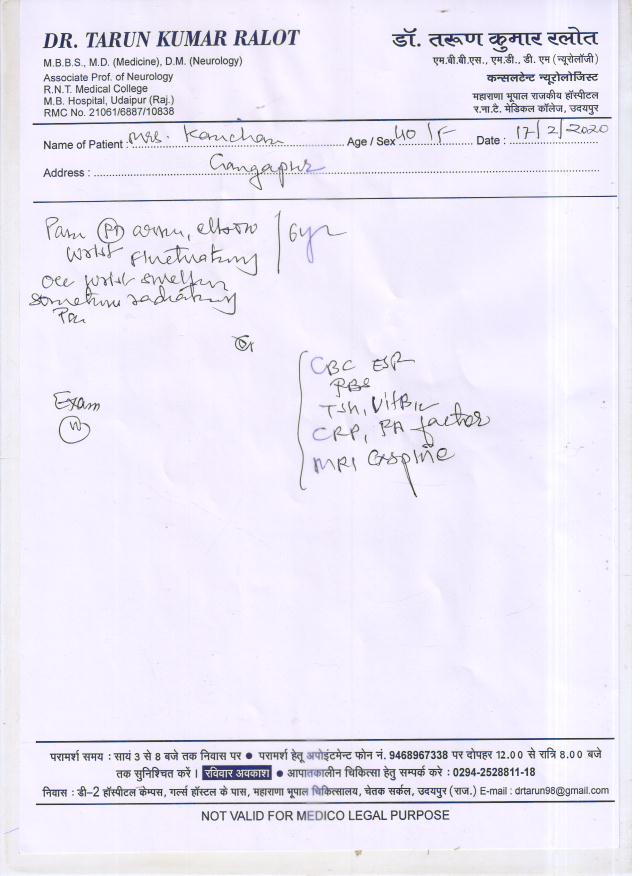 DR. TARUN KUMAR RALOT
M.B.B.S., M.D. (Medicine), D.M. (Neurology)
Associate Prof. of Neurology
R.N.T. Medical College
M.B. Hospital, Udaipur (Raj.)
RMC No. 21061/6887/10838
डॉ. तरूण कुमार रलोत
एम.बी.बी.एस., एम.डी., डी. एम (न्यूरोलॉजी)
कन्सलटेन्ट न्यूरोलोजिस्ट
महाराणा भूपाल राजकीय हॉस्पीटल
र.ना.टै. मेडिकल कॉलेज, उदयपुर
Name of Patient : Mrs. Kanchan Age / Sex 40 / F Date : 17/2/2020
Address : Gangapur
Pain Rt arm, elbow / 6yr
wrist fluctuating
occ wrist
sometime radiating
Pain
CBC ESR
PBS
TSH, VitB12
CRP, RA factor
MRI Cspine
Exam
N
परामर्श समय : सायं 3 से 8 बजे तक निवास पर ● परामर्श हेतू अपोइंटमेन्ट फोन नं. 9468967338 पर दोपहर 12.00 से रात्रि 8.00 बजे
तक सुनिश्चित करें । रविवार अवकाश ● आपातकालीन चिकित्सा हेतु सम्पर्क करे : 0294-2528811-18
निवास : डी-2 हॉस्पीटल केम्पस, गर्ल्स हॉस्टल के पास, महाराणा भूपाल चिकित्सालय, चेतक सर्कल, उदयपुर (राज.) E-mail : drtarun98@gmail.com
NOT VALID FOR MEDICO LEGAL PURPOSE